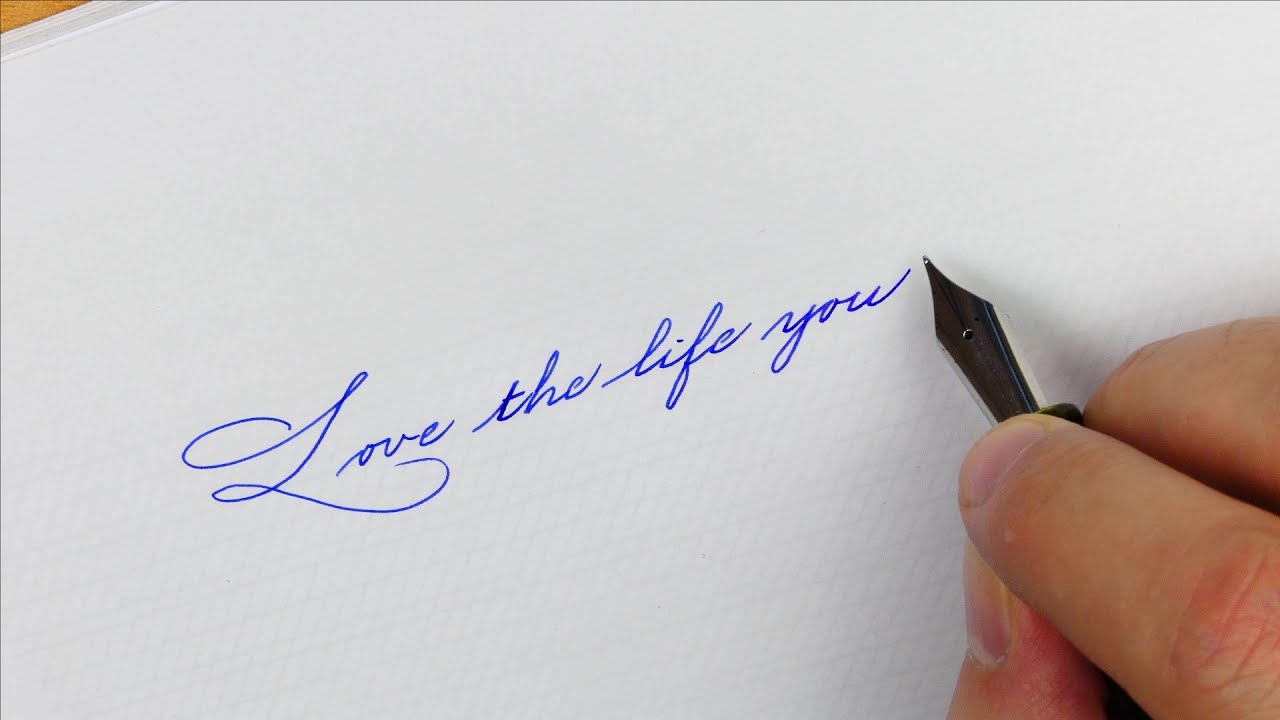 Love the life you